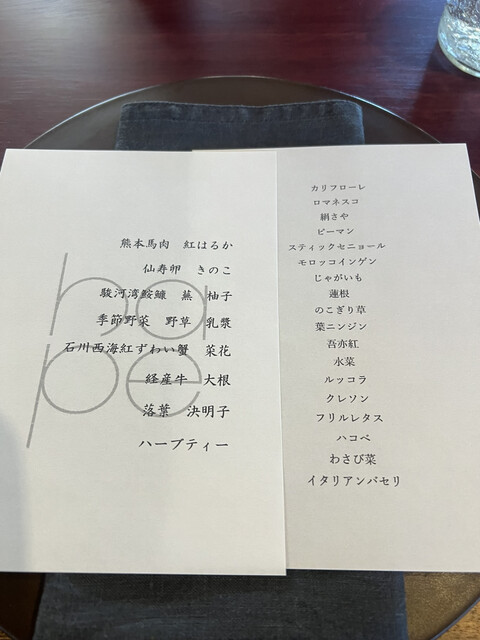 hape
熊本馬肉　紅はるか
仙寿卵　きのこ
駿河湾鮟鱇　蕪　柚子
季節野菜　野草　乳漿
石川西海紅ずわい蟹　菜花
経産牛　大根
落葉　決明子
ハーブティー
カリフローレ
ロマネスコ
絹さや
ピーマン
スティックセニョール
モロッコインゲン
じゃがいも
蓮根
のこぎり草
葉ニンジン
吾亦紅
水菜
ルッコラ
クレソン
フリルレタス
ハコベ
わさび菜
イタリアンパセリ